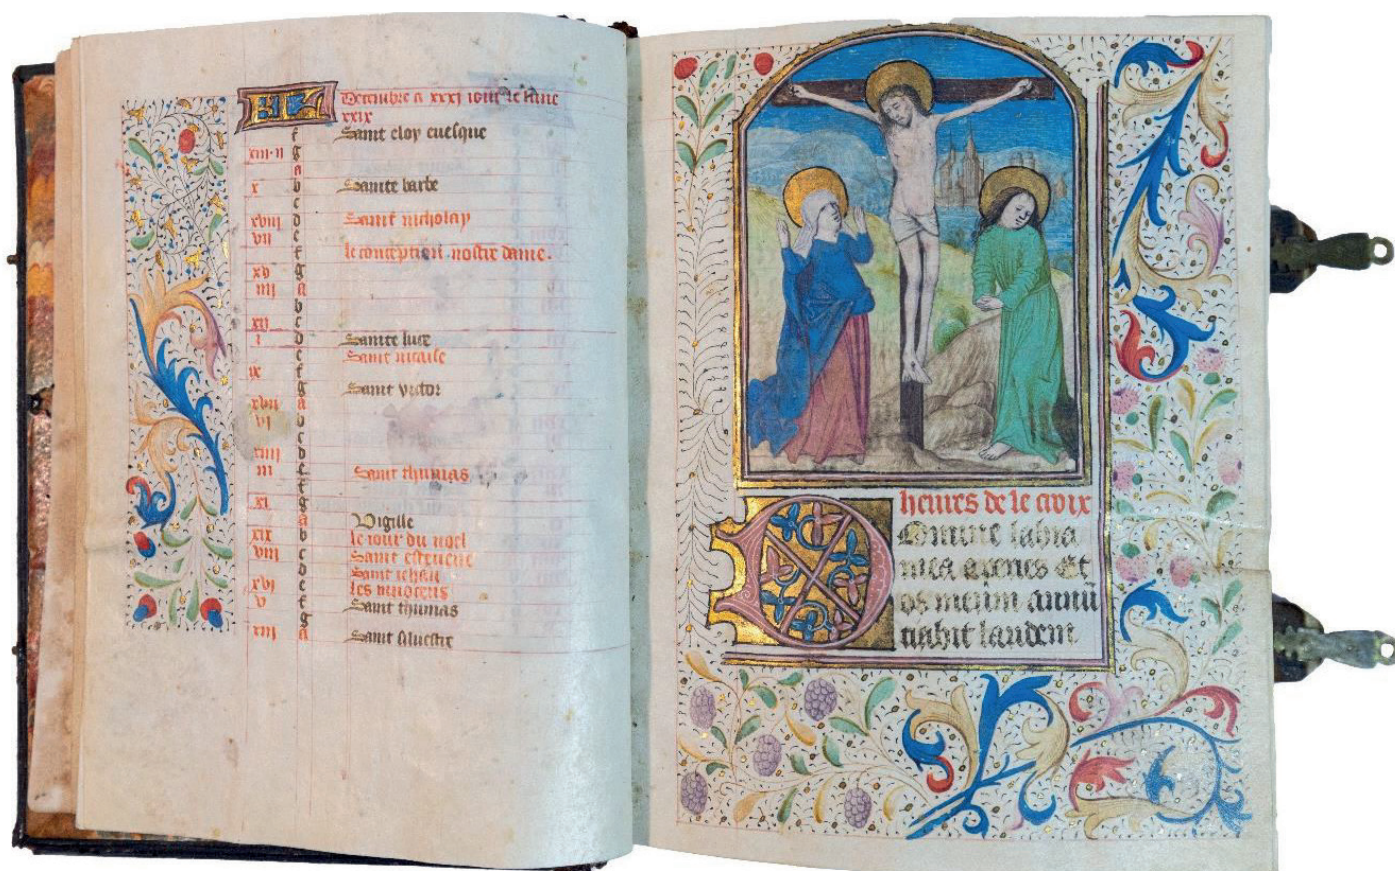 KL Decembre a xxxj iour le lune
xxix
f Saint eloy euesque
xiii·ii g
a
x b Sainte barbe
c
xviij d Saint nicholay
vii e
f le conception nostre dame.
g
xv
iiij a
b
c
xij
i d Sainte luce
e Saint nicaise
ix f
g Saint victor
xvij a
vj b
c
xiiij d
iii e Saint thumas
f
xi g
a Vigille
xix b le iour du noel
viij c Saint esteuene
d Saint iehan
xvj e les innocens
v f Saint thumas
g
xiij a Saint siluestre
heures de le croix
Domine labia
mea aperies Et
os meum annũ
tiabit laudem